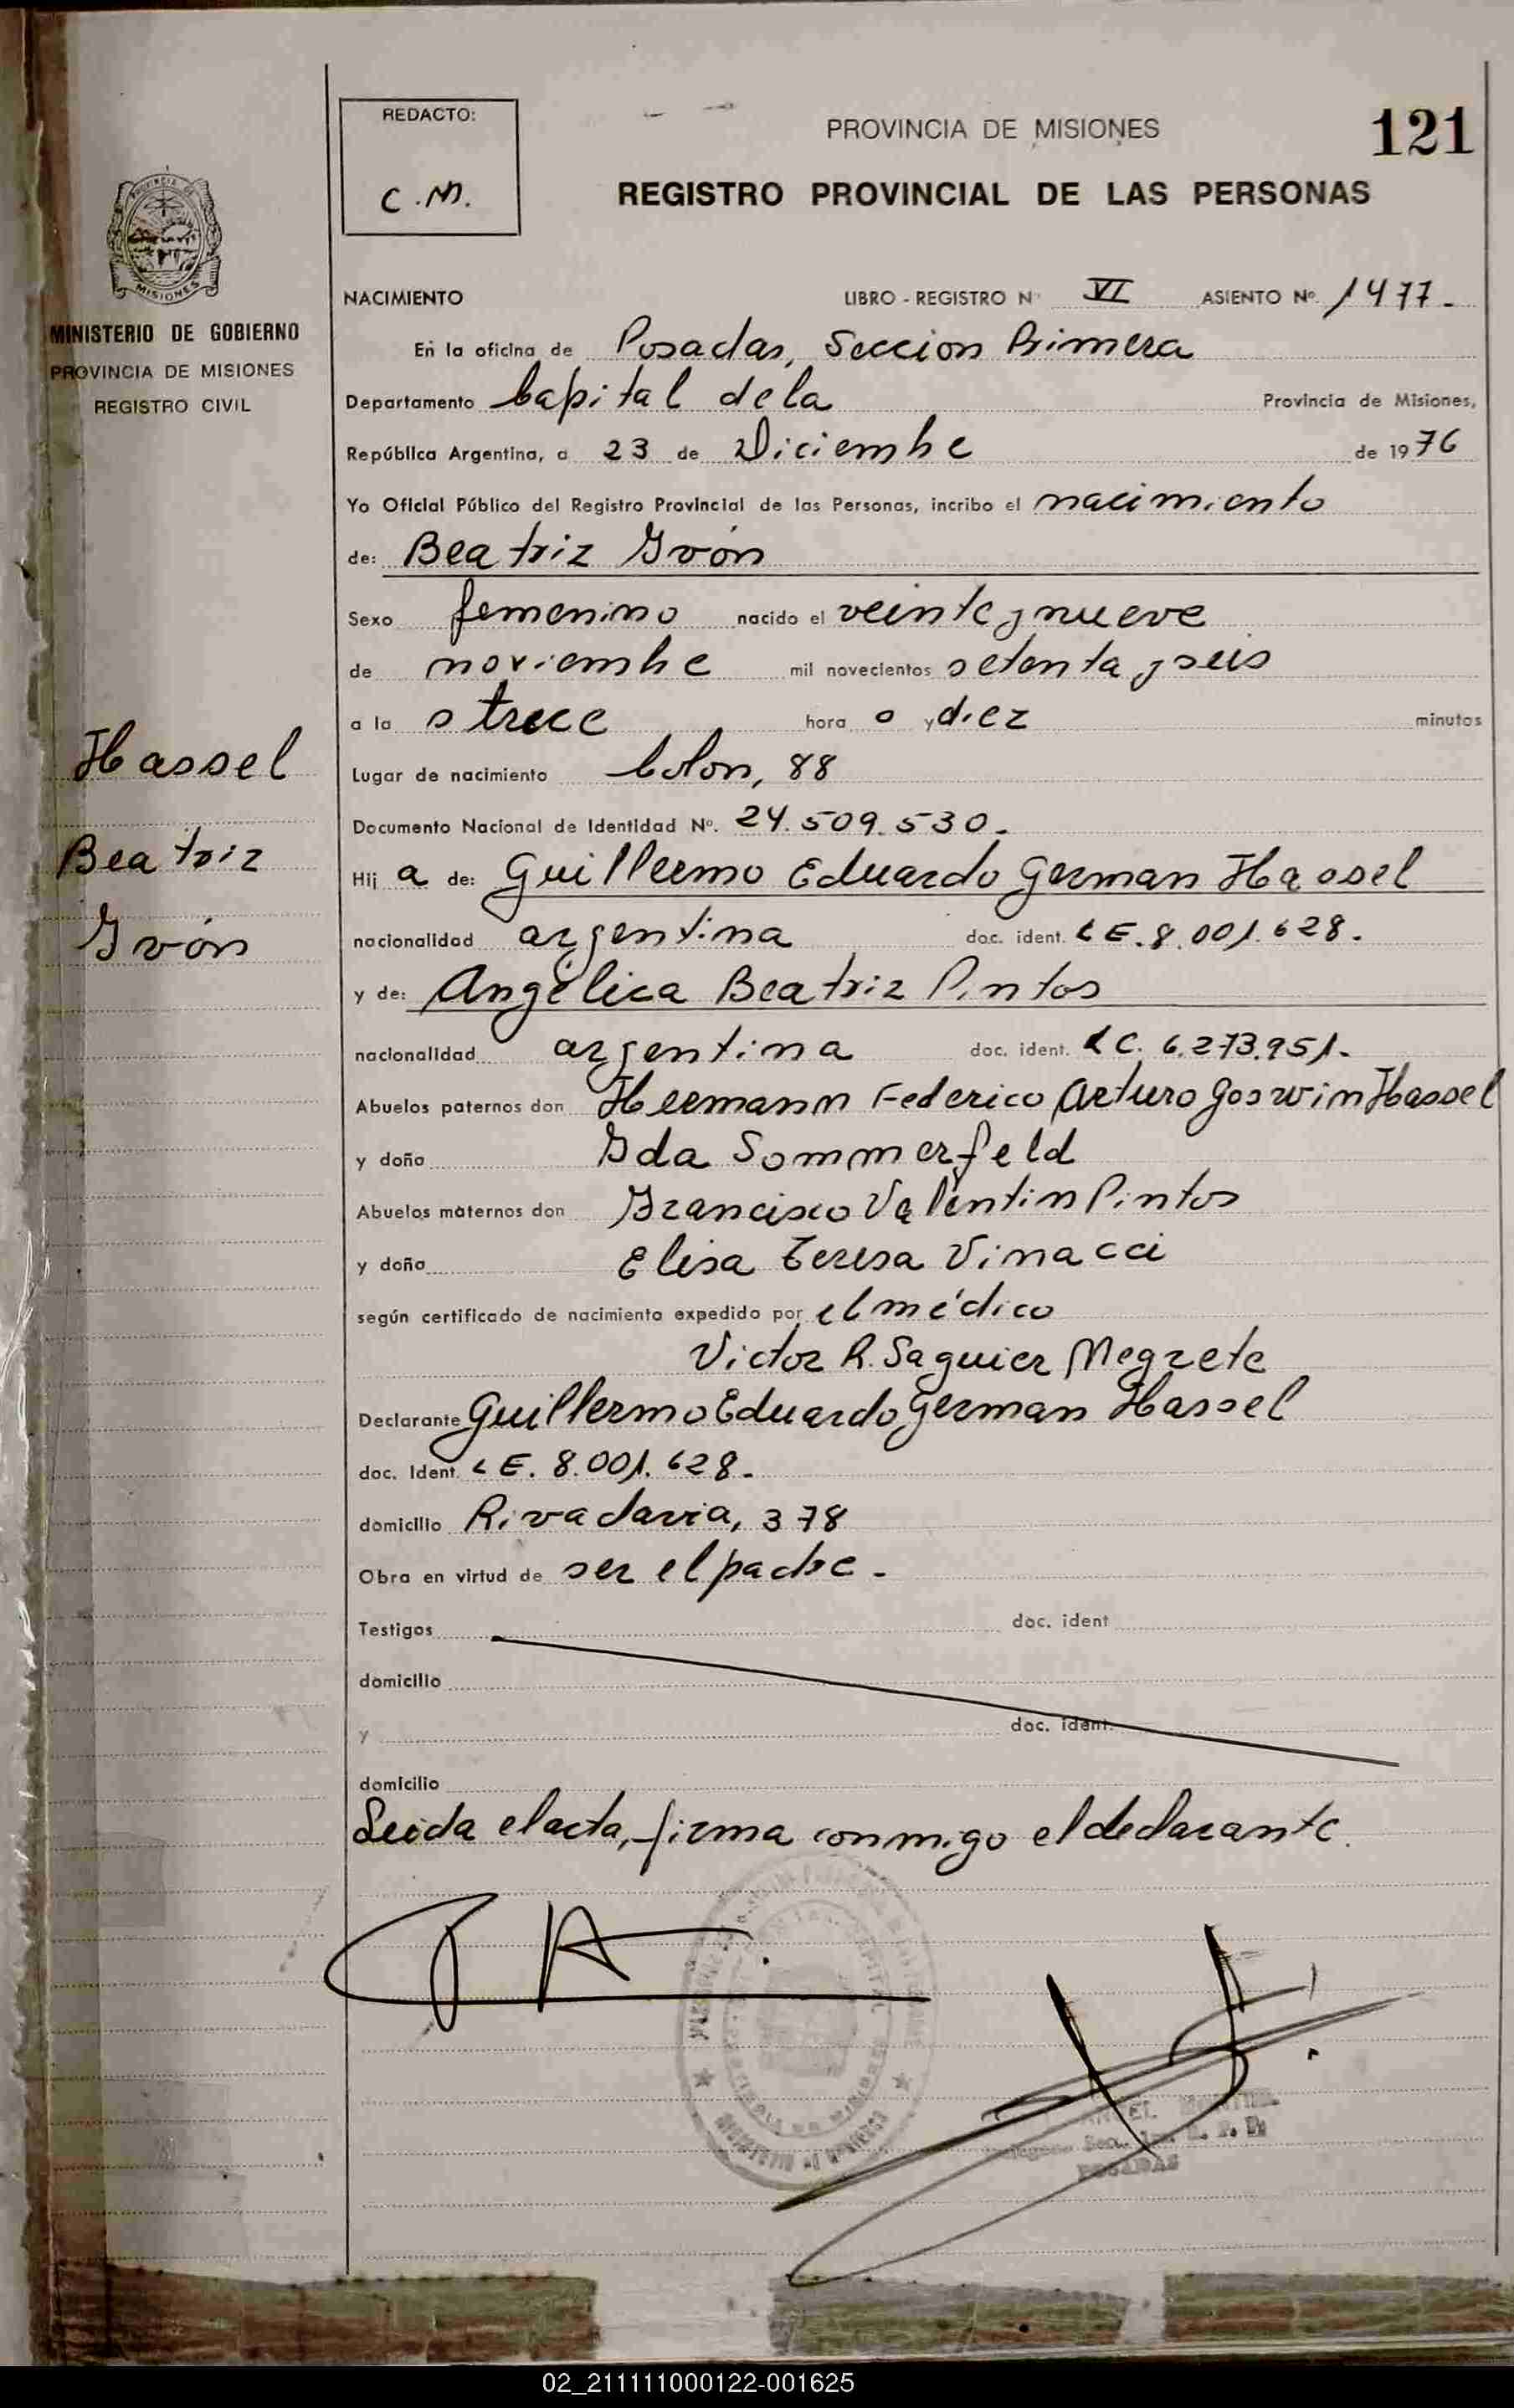 REDACTO:
C.M.
PROVINCIA DE MISIONES
121
REGISTRO PROVINCIAL DE LAS PERSONAS
MISIONES
MINISTERIO DE GOBIERNO
PROVINCIA DE MISIONES
REGISTRO CIVIL
NACIMIENTO LIBRO - REGISTRO Nº VI ASIENTO Nº 1477.-
En la oficina de Posadas, Seccion Primera
Departamento Capital de la Provincia de Misiones,
República Argentina, a 23 de Diciembre de 1976
Yo Oficial Público del Registro Provincial de las Personas, incribo el nacimiento
de: Beatriz Ivón
Sexo femenino nacido el veinte y nueve
de noviembre mil novecientos setenta y seis
a la s trece hora o y diez minutos
Hassel
Lugar de nacimiento Colon, 88
Documento Nacional de Identidad Nº. 24.509.530.-
Beatriz
Hij a de: Guillermo Eduardo German Hassel
Ivón
nacionalidad argentina doc. ident. LE. 8.001.628.-
y de: Angélica Beatriz Pintos
nacionalidad argentina doc. ident. LC. 6.273.951.-
Abuelos paternos don Hermann Federico Arturo Goswin Hassel
y doña Ida Sommerfeld
Abuelos maternos don Francisco Valentin Pintos
y doña Elisa Teresa Vinacci
según certificado de nacimiento expedido por el médico
Victor R. Saguier Negrete
Declarante Guillermo Eduardo German Hassel
doc. Ident. LE. 8.001.628.-
domicilio Rivadavia, 378
Obra en virtud de ser el padre.-
Testigos doc. ident
domicilio
y doc. ident.
domicilio
Leida el acta, firma conmigo el declarante.
POSADAS
02_211111000122-001625